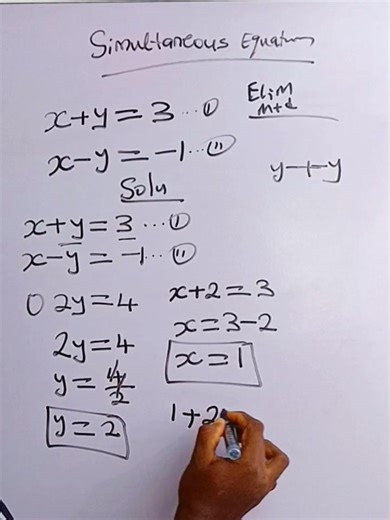 Simultaneous Equations
x+y=3 ...(i)
Elim
Mtd
x-y=-1 ...(ii)
y--y
Solu
x+y=3 ...(i)
x-y=-1 ...(ii)
0 2y=4
2y=4
y=4/2
y=2
x+2=3
x=3-2
x=1
1+2